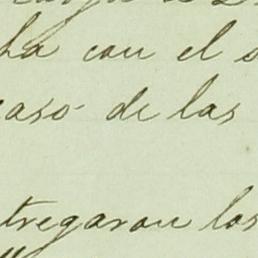 ha con el
caso de las
tregaron los